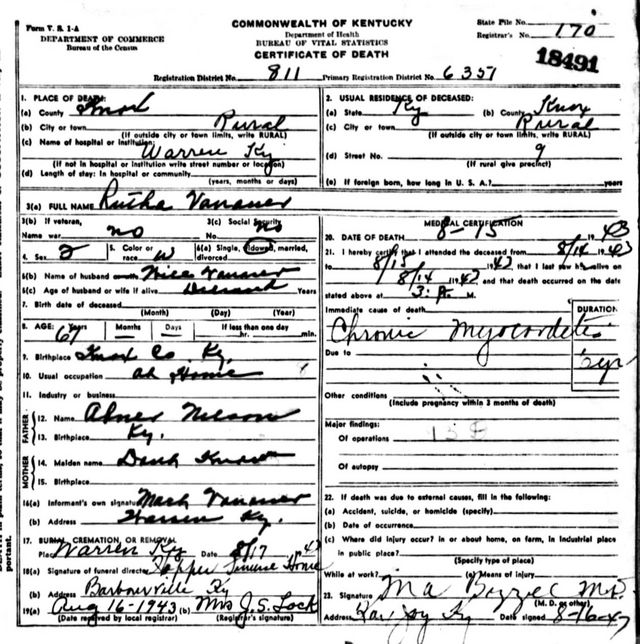 Form V. S. 1-A
DEPARTMENT OF COMMERCE
Bureau of the Census
COMMONWEALTH OF KENTUCKY
Department of Health
BUREAU OF VITAL STATISTICS
CERTIFICATE OF DEATH
State File No.
Registrar's No. 170
18491
Registration District No. 811 Primary Registration District No. 6351
1. PLACE OF DEATH:
(a) County Knox
(b) City or town Rural
(If outside city or town limits, write RURAL)
(c) Name of hospital or institution:
Warren Ky
(If not in hospital or institution write street number or location)
(d) Length of stay: In hospital or community
(years, months or days)
2. USUAL RESIDENCE OF DECEASED:
(a) State Ky (b) County Knox
(c) City or town Rural
(If outside city or town limits, write RURAL)
(d) Street No. 9
(If rural give precinct)
(e) If foreign born, how long in U. S. A.? years
3(a) FULL NAME Rutha Vanover
3(b) If veteran,
Name war no
3(c) Social Security
No. no
4. Sex 2 5. Color or
race W 6(a) Single, widowed, married,
divorced
6(b) Name of husband Vanover
6(c) Age of husband or wife if alive Deceased Years
7. Birth date of deceased
(Month) (Day) (Year)
8. AGE: Years 61 Months Days If less than one day
hr. min.
9. Birthplace Knox Co. Ky.
10. Usual occupation at Home
11. Industry or business
FATHER
12. Name Abner Nelson
13. Birthplace Ky.
MOTHER
14. Maiden name Dont Know
15. Birthplace
16(a) Informant's own signature Mack Vanover
(b) Address Warren Ky.
17. BURIAL, CREMATION, OR REMOVAL
Place Warren Ky Date 8/17 43
18(a) Signature of funeral director Hopper Funeral Home
(b) Address Barbourville Ky
19(a) Aug 16-1943 (b) Mrs J.S. Lock
(Date received by local registrar) (Registrar's signature)
MEDICAL CERTIFICATION
20. DATE OF DEATH 8-15 1943
21. I hereby certify that I attended the deceased from 8/14 1943
to 8/15 1943 that I last saw alive on
8/14 1943 and that death occurred on the date
stated above at 3: P. M.
Immediate cause of death
DURATION
Chronic Myocardetis
Due to
Other conditions
(Include pregnancy within 3 months of death)
Major findings:
Of operations
Of autopsy
22. If death was due to external causes, fill in the following:
(a) Accident, suicide, or homicide (specify)
(b) Date of occurrence
(c) Where did injury occur? in or about home, on farm, in industrial place
in public place?
(Specify type of place)
While at work? (e) Means of injury
23. Signature M.D.
(M. D. or other)
Address Kay Jay Ky Date signed 8-16-43